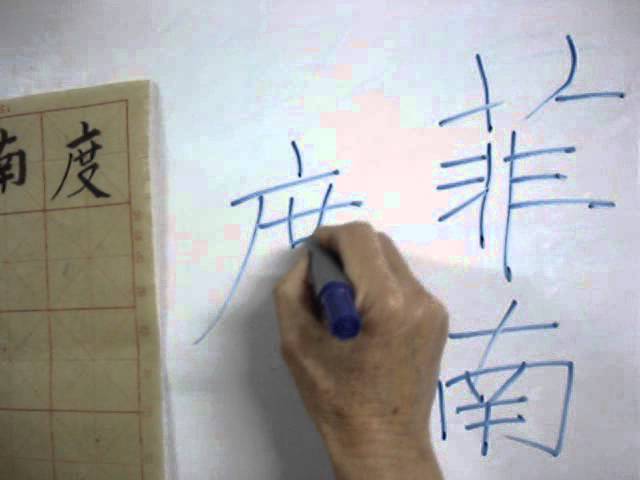 菲南
度
南度